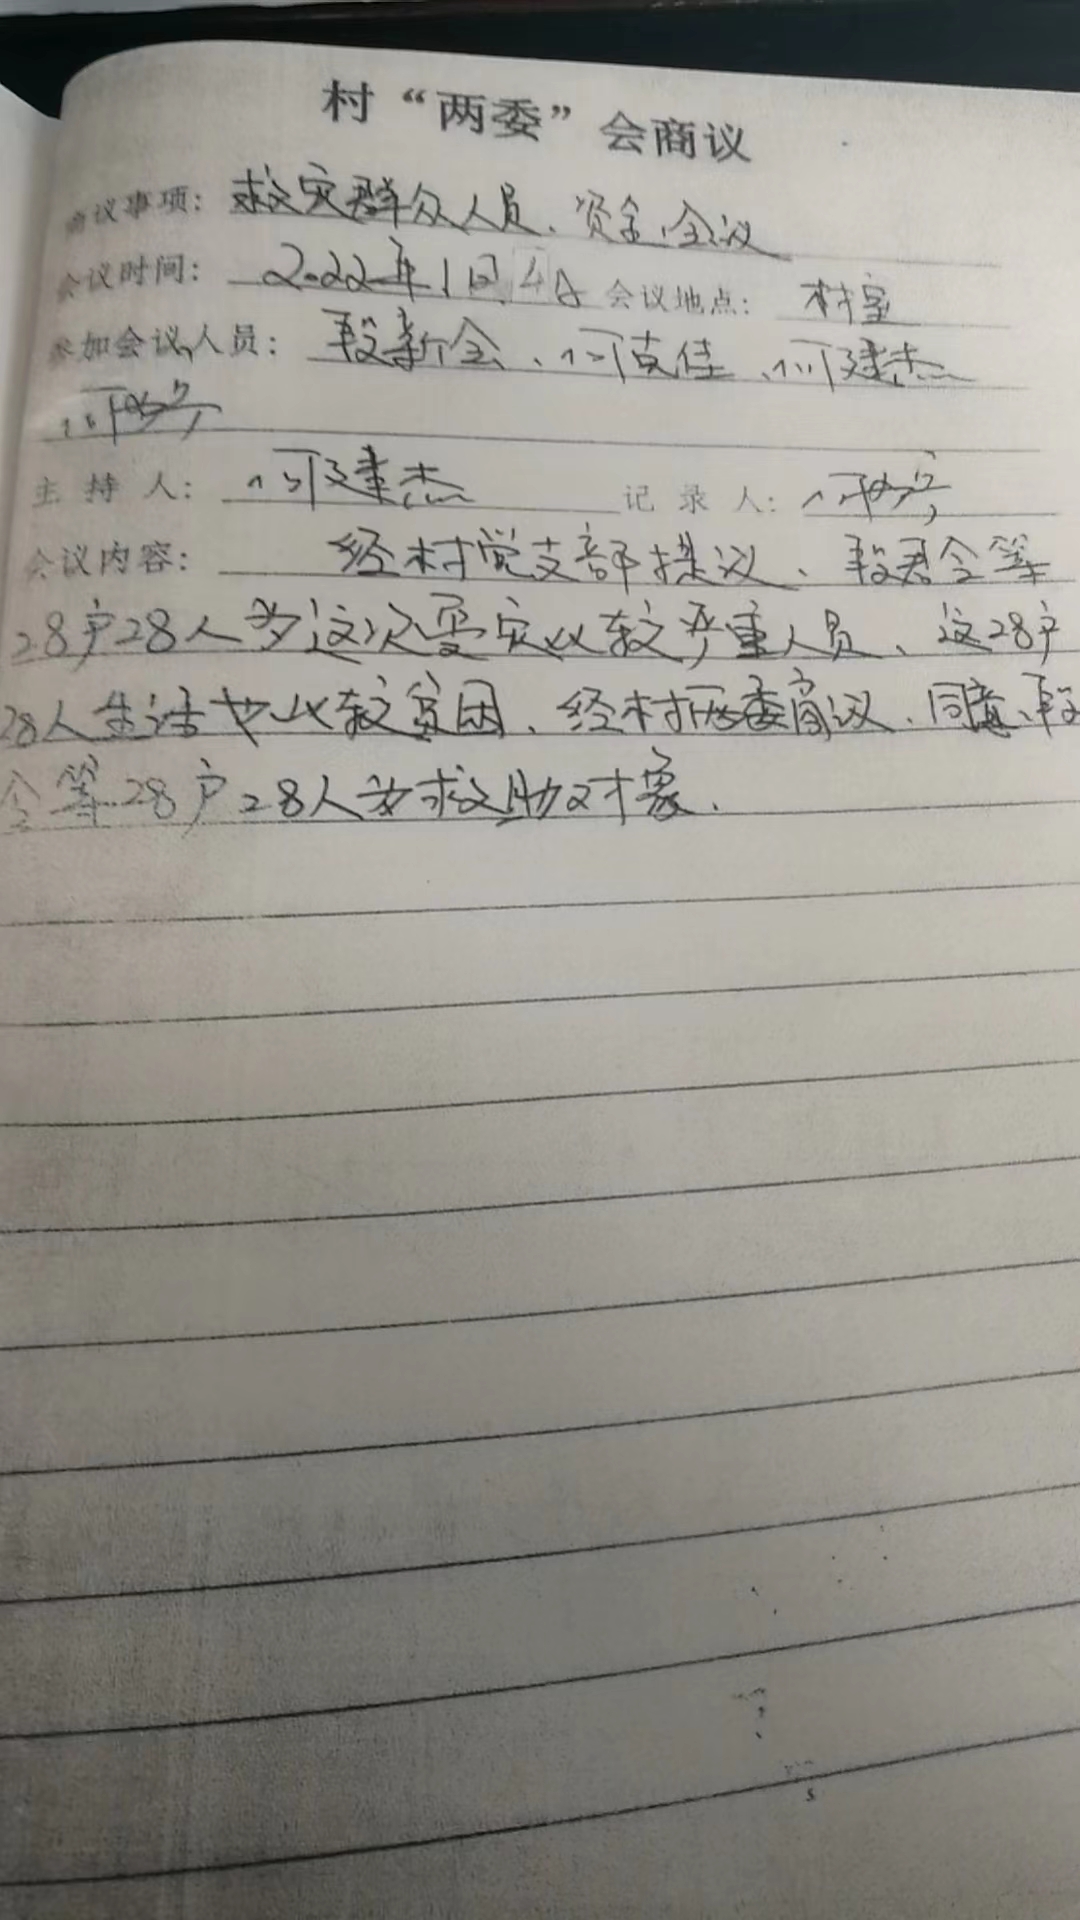 村“两委”会商议
商议事项：救灾群众人员、资金会议
会议时间：2022年1月4日 会议地点：村室
参加会议人员：段新会、何真佳、何建杰
何
主持人：何建杰 记录人：何
会议内容：经村党支部提议、段君令等
28户28人为这次受灾比较严重人员、这28户
28人生活也比较贫困、经村两委商议、同意、段
令等28户28人为救助对象.